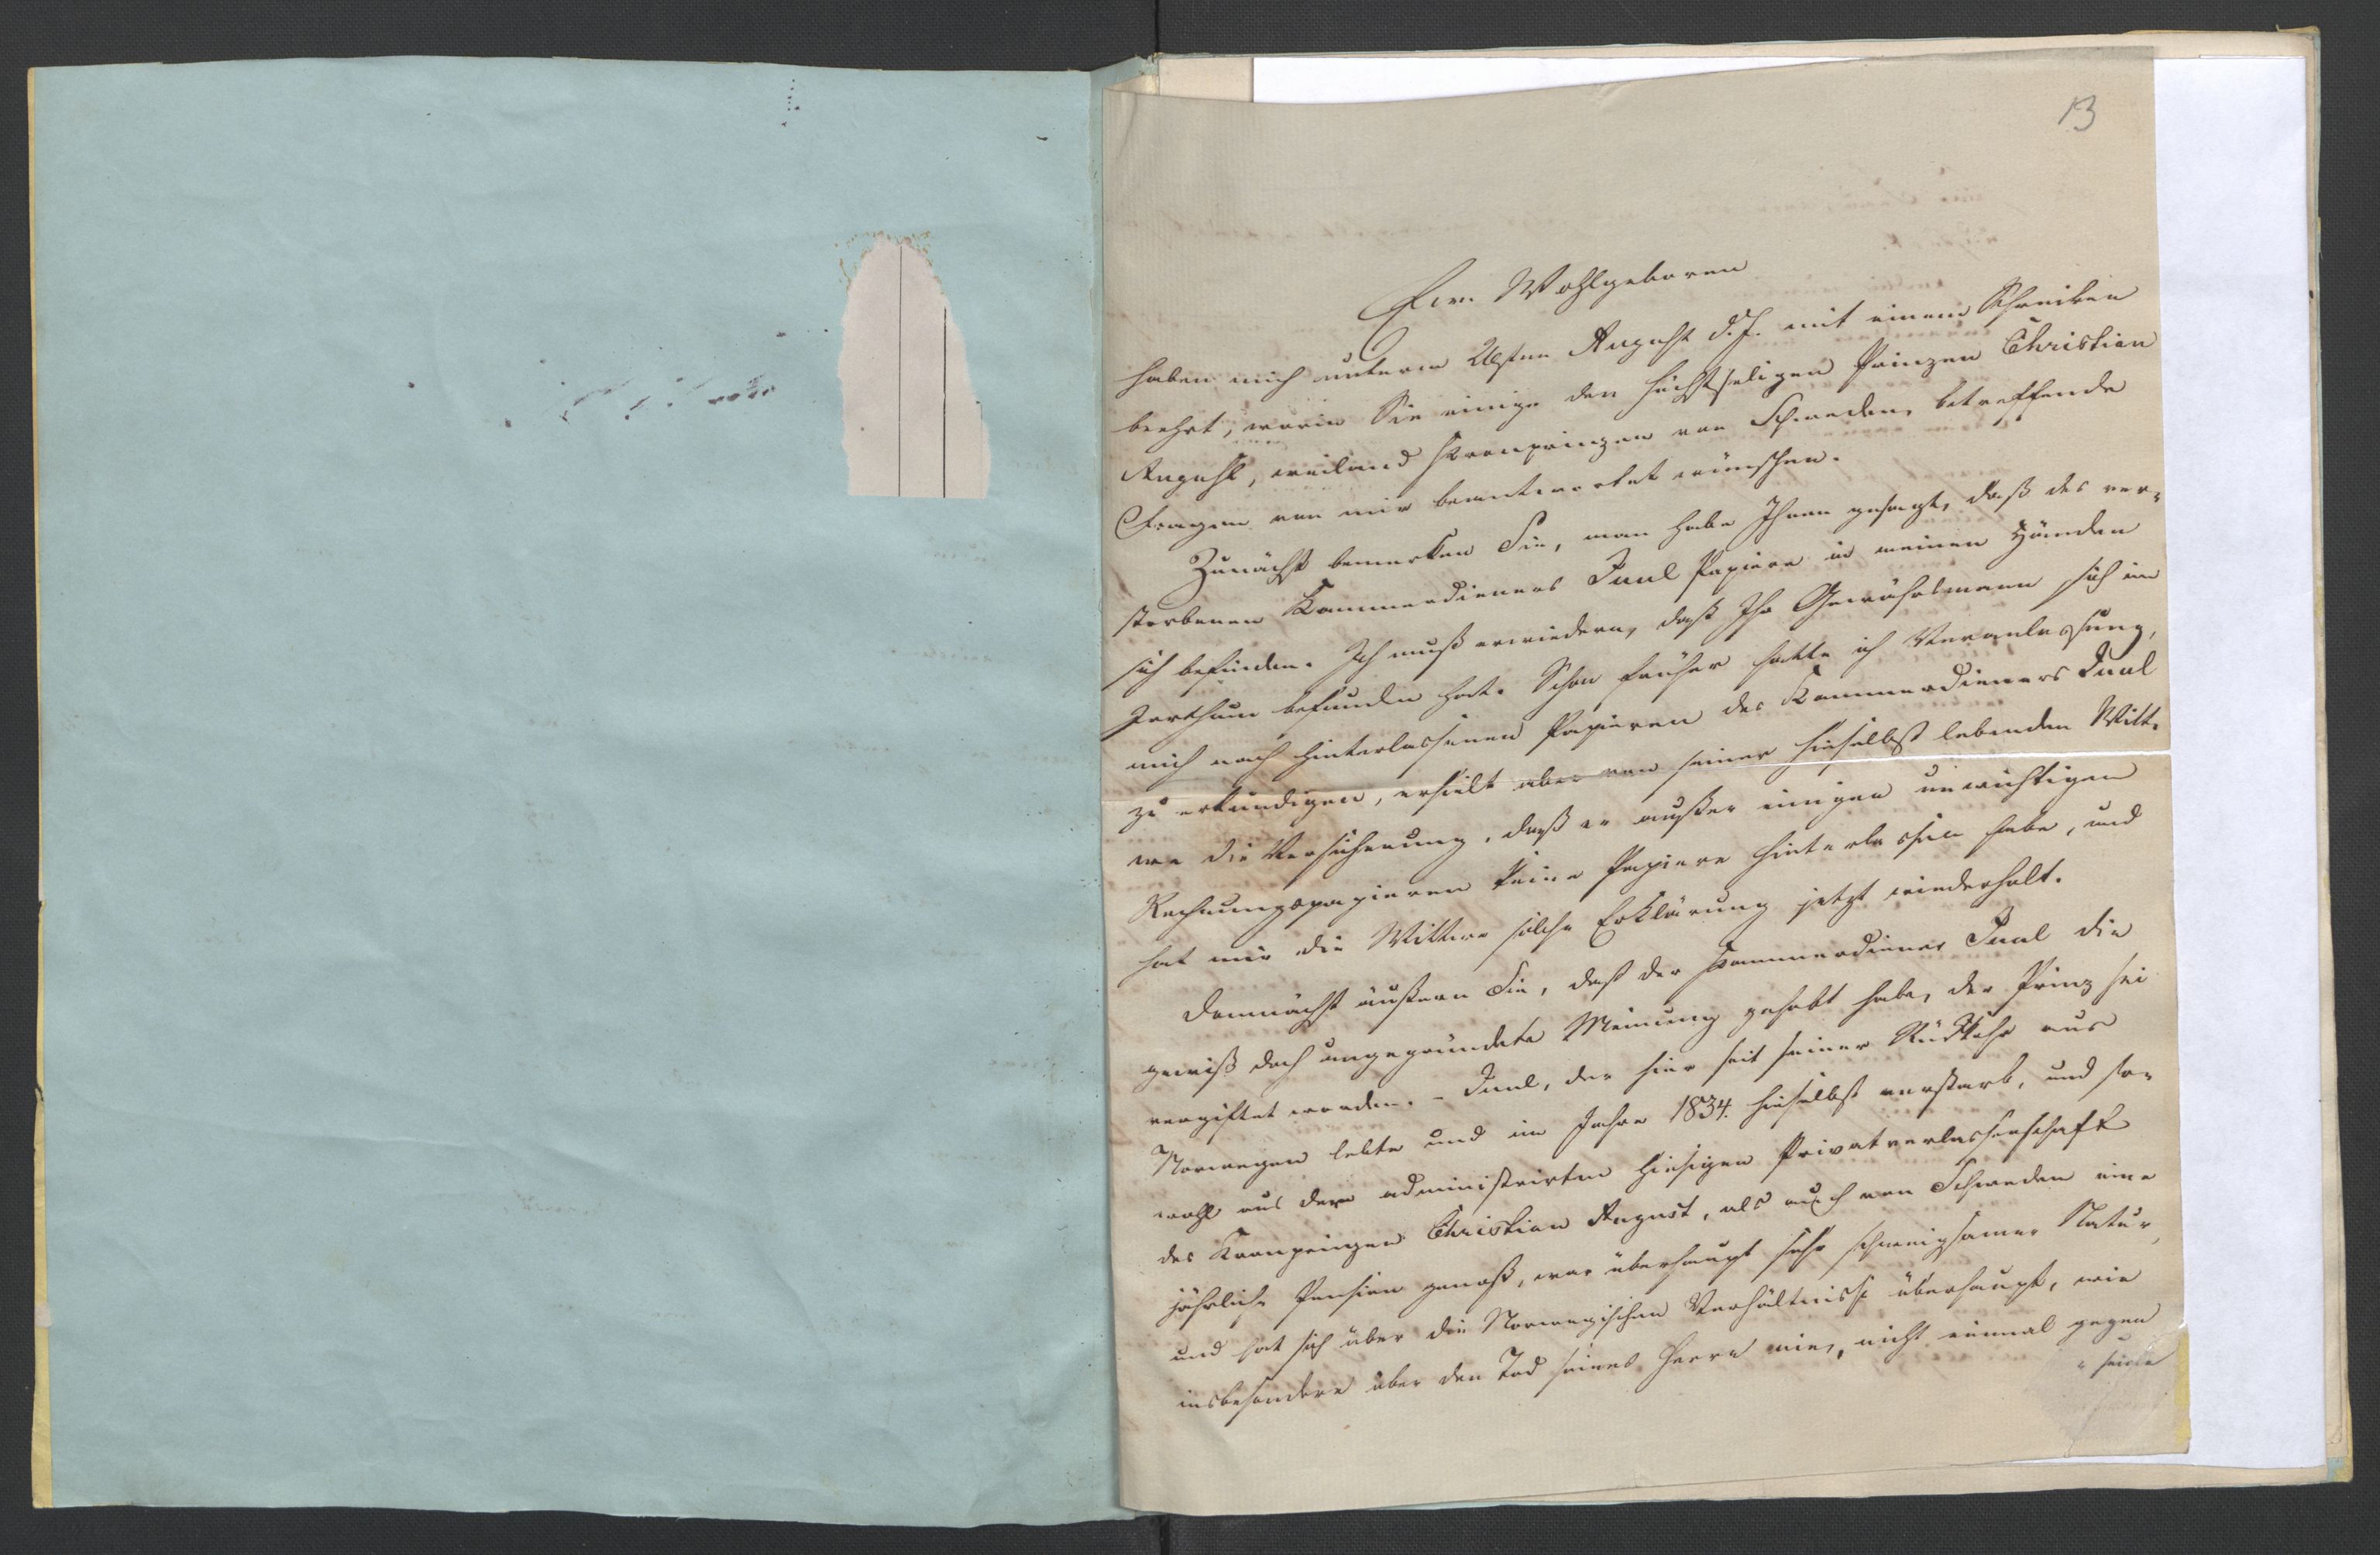 13
Ew. Wohlgeboren
haben mich unterm 26sten August d. J. mit einem Schreiben
beehrt, worin Sie einige den höchstseligen Prinzen Christian
August, weiland Kronprinzen von Schweden, betreffende
Fragen von mir beantwortet wünschen.
Zunächst bemerken Sie, man habe Ihnen gesagt, daß des ver-
storbenen Kammerdieners Juul Papiere in meinen Händen
sich befinden. Ich muß erwiedern, daß Ihr Gewährsmann sich im
Irrthum befunden hat. Schon früher hatte ich Veranlassung,
mich nach hinterlassenen Papieren des Kammerdieners Juul
zu erkundigen, erhielt aber von seiner hieselbst lebenden Witt-
we die Versicherung, daß er außer einigen unwichtigen
Rechnungspapieren keine Papiere hinterlassen habe, und
hat mir die Wittwe solche Erklärung jetzt wiederholt.
Demnächst äußern Sie, daß der Kammerdiener Juul die
gewiß doch ungegründete Meinung gehabt habe, der Prinz sei
vergiftet worden. - Juul, der hier seit seiner Rückkehr aus
Norwegen lebte und im Jahre 1834. hieselbst verstarb, und so-
wohl aus der administrirten hiesigen Privatverlassenschaft
des Kronprinzen Christian August, als auch von Schweden eine
jährliche Pension genoß, war überhaupt sehr schweigsamer Natur,
und hat sich über die Norwegischen Verhältnisse überhaupt, wie
insbesondere über den Tod seines Herrn nie, nicht einmal gegen
seine